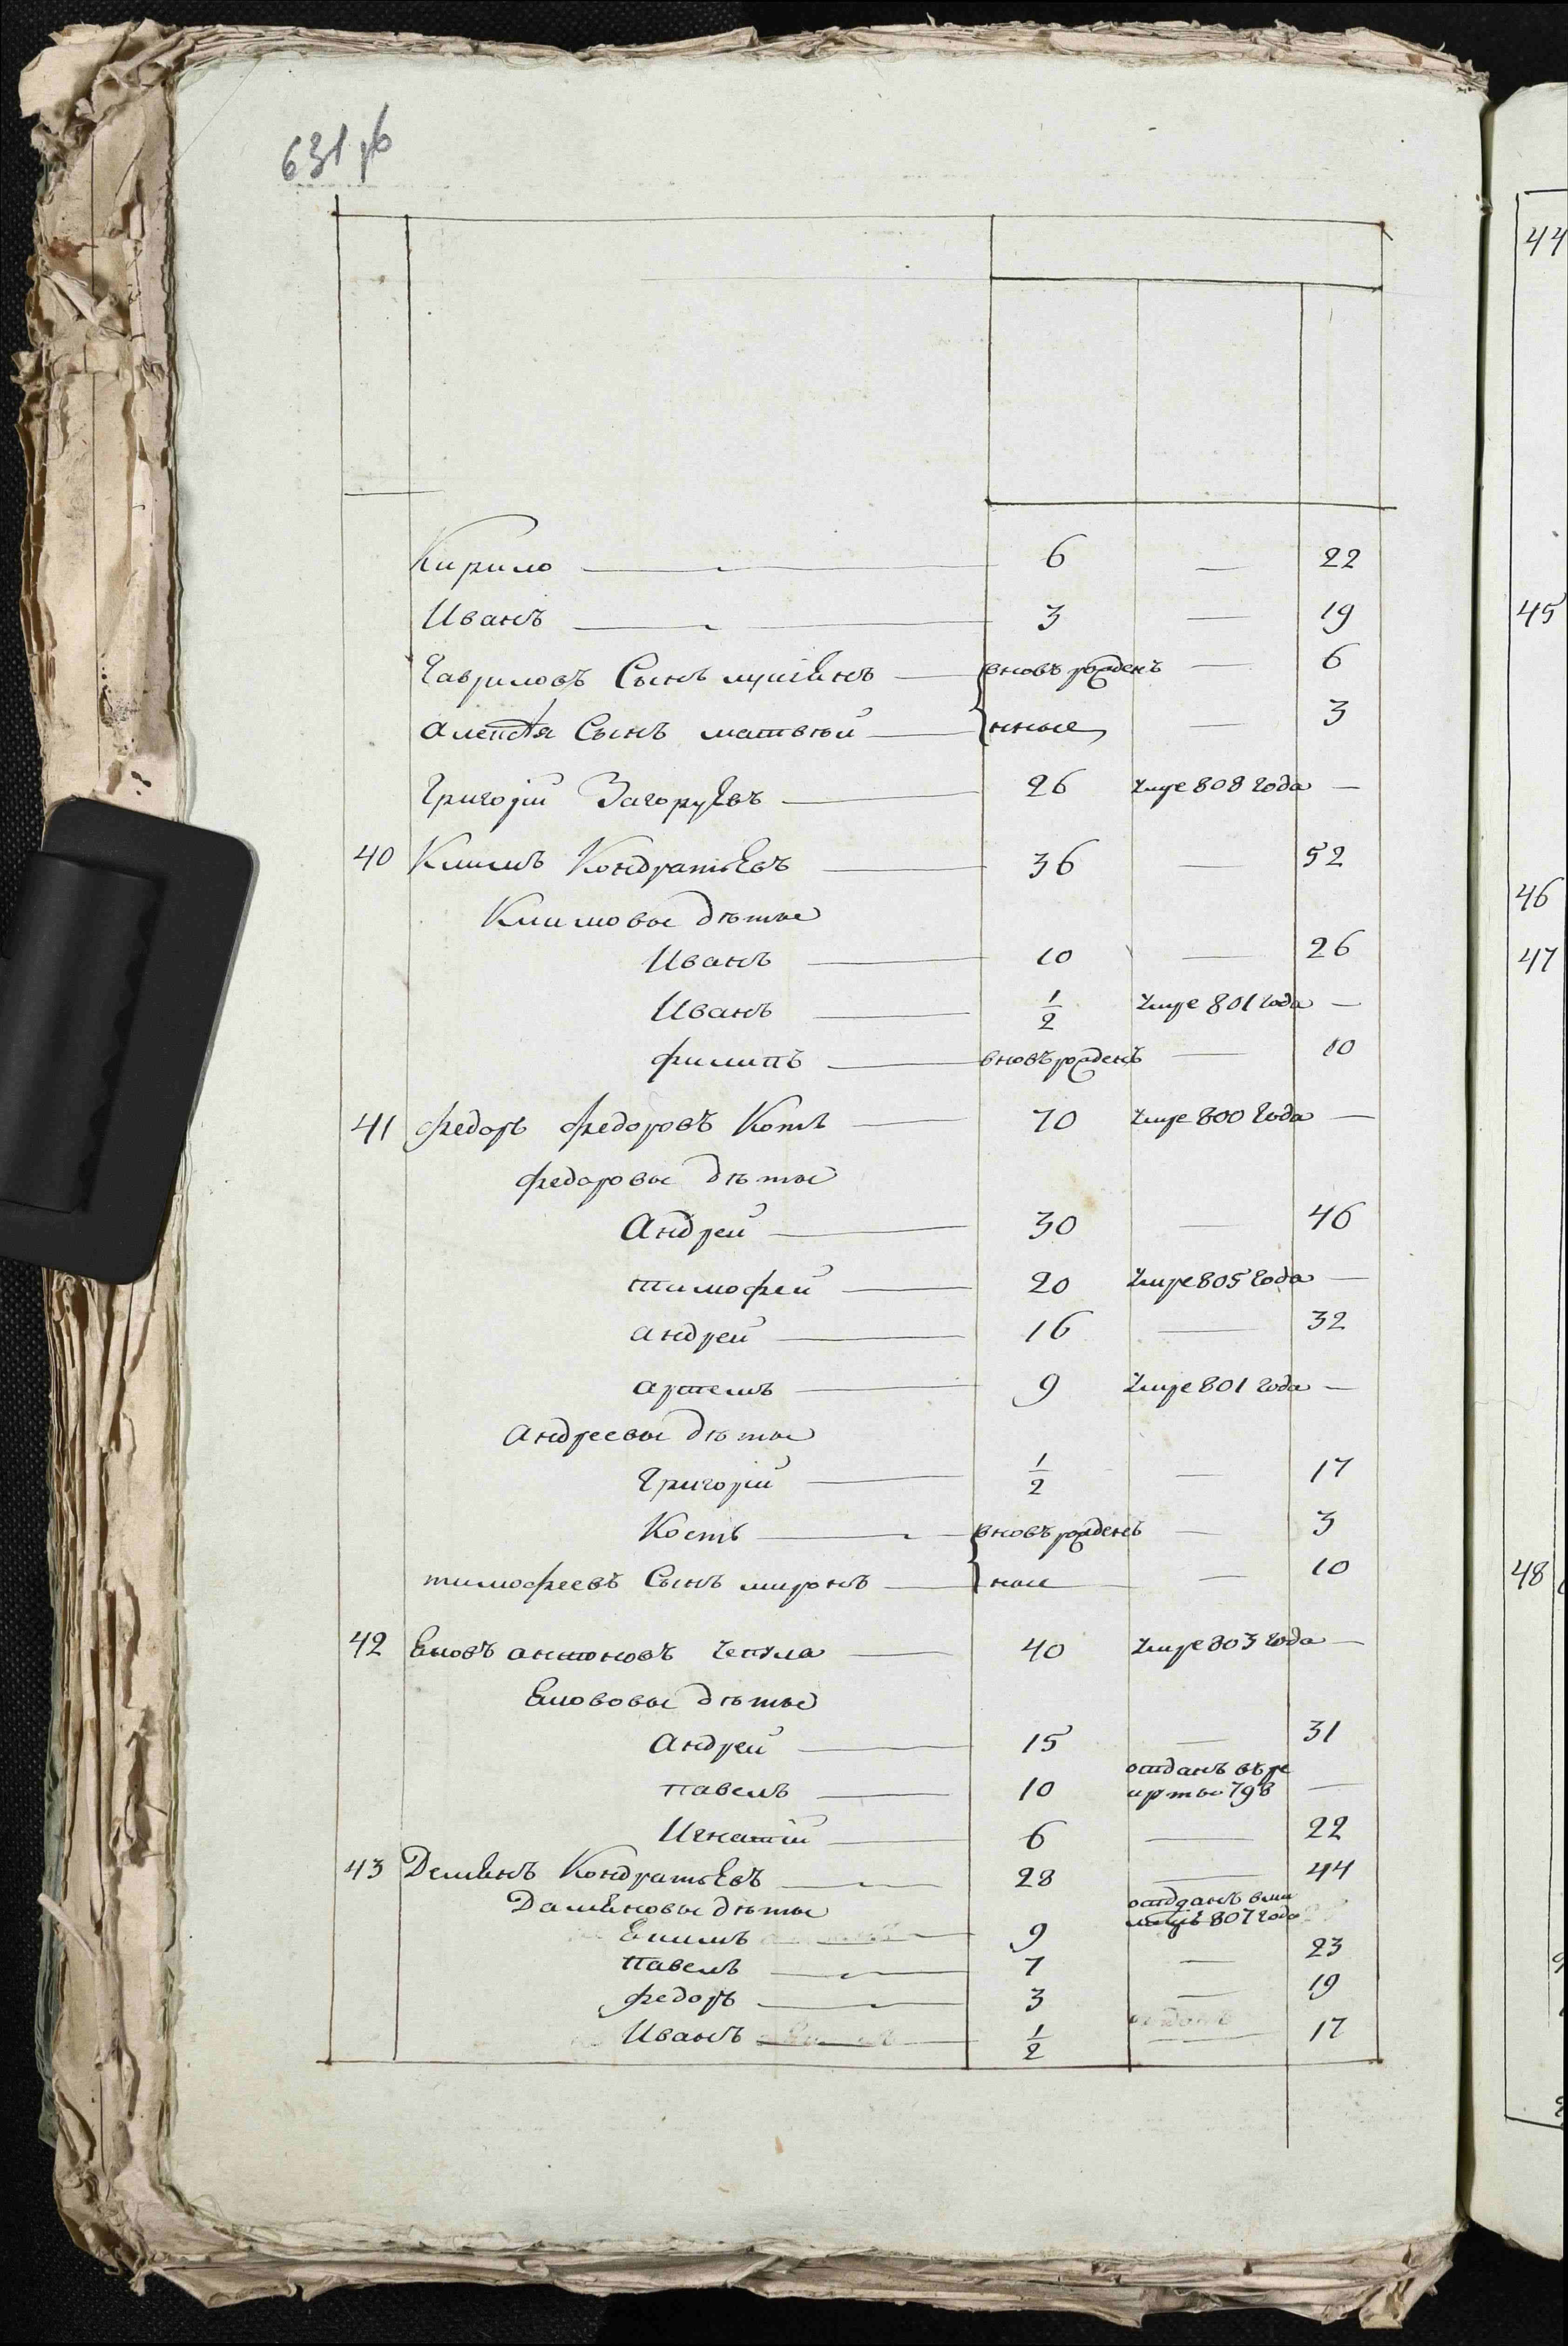 631 об
Кирило — 6 — 22
Иванъ — 3 — 19
Гавриловъ Сынъ — вновь рожден — 6
Алексея Сынъ матвѣй — нные — 3
Григорій — 26 умре 808 года —
40 Климъ КондратьЕвъ — 36 — 52
Климовы дѣты
Иванъ — 10 — 26
Иванъ — 1/2 умре 801 года —
филипъ — вновь рожденъ — 10
41 федоръ федоровъ Котъ — 70 умре 800 года —
федоровы дѣты
Андрей — 30 — 46
тимофей — 20 умре 805 года —
андрей — 16 — 32
артемъ — 9 умре 801 года —
Андреевы дѣты
Григорій — 1/2 — 17
Кость — вновь рожденъ — 3
тимофеевъ Сынъ миронъ — ные — 10
42 Еловъ антоновъ Чепула — 40 умре 803 года —
Еловovы дѣты
Андрей — 15 — 31
павелъ — 10 отданъ въ ре
круты 798 —
Игнатій — 6 — 22
43 ДемЕнъ КондратьЕвъ — 28 — 44
ДамЕновы дѣты
Екимъ — 9 отданъ в ми
лицѣ 807 года
павелъ — 7 — 23
федоръ — 3 — 19
Иванъ — 1/2 — 17
44
45
46
47
48